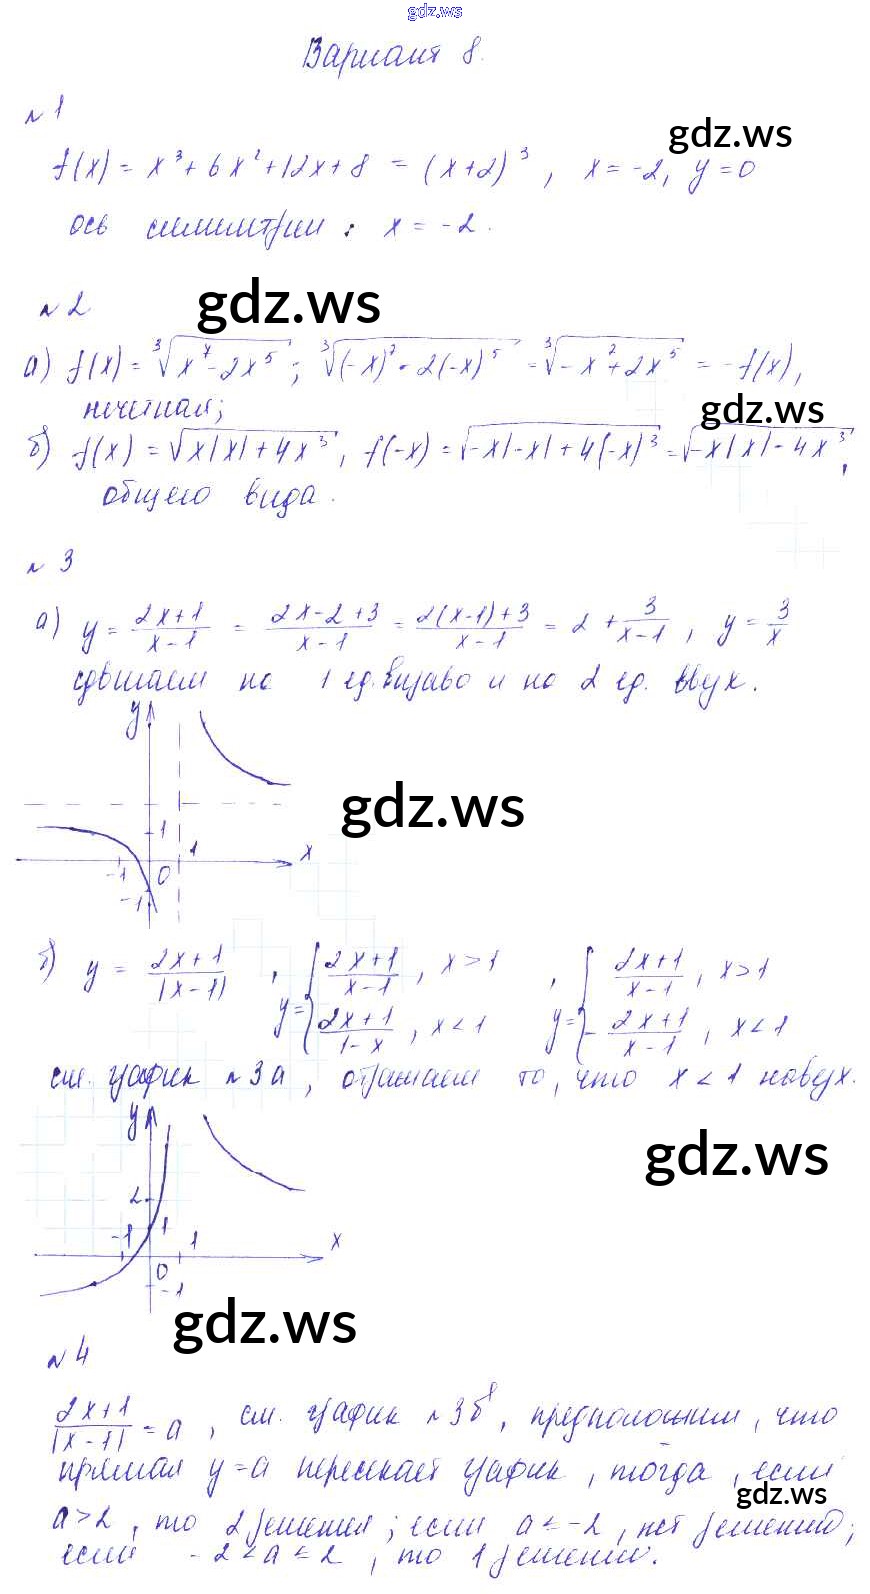 gdz.ws
Вариант 8.
№1
gdz.ws
f(x) = x³ + 6x² + 12x + 8 = (x+2)³, x = -2, y = 0
ось симметрии: x = -2.
№2
gdz.ws
а) f(x) = ∛(x⁷ - 2x⁵); ∛((-x)⁷ - 2(-x)⁵) = ∛(-x⁷ + 2x⁵) = -f(x),
нечетная;
gdz.ws
б) f(x) = √(x|x| + 4x³), f(-x) = √(-x|-x| + 4(-x)³) = √(-x|x| - 4x³),
общего вида.
№3
а) y = (2x+1)/(x-1) = (2x-2+3)/(x-1) = (2(x-1)+3)/(x-1) = 2 + 3/(x-1), y = 3/x
сдвигаем на 1 ед. вправо и на 2 ед. вверх.
y
1
-1 0 1 x
-1
gdz.ws
б) y = (2x+1)/|x-1|, y = { (2x+1)/(x-1), x>1; (2x+1)/(1-x), x<1, y = { (2x+1)/(x-1), x>1; -(2x+1)/(x-1), x<1
см. график №3а, отражаем то, что x<1 наверх.
y
2
1
-1 0 1 x
-1
gdz.ws
gdz.ws
№4
(2x+1)/|x-1| = a, см. график №3б, предположим, что
прямая y=a пересекает график, тогда, если
gdz.ws
a>2, то 2 решения; если a≤-2, нет решений;
если -2<a≤2, то 1 решение.